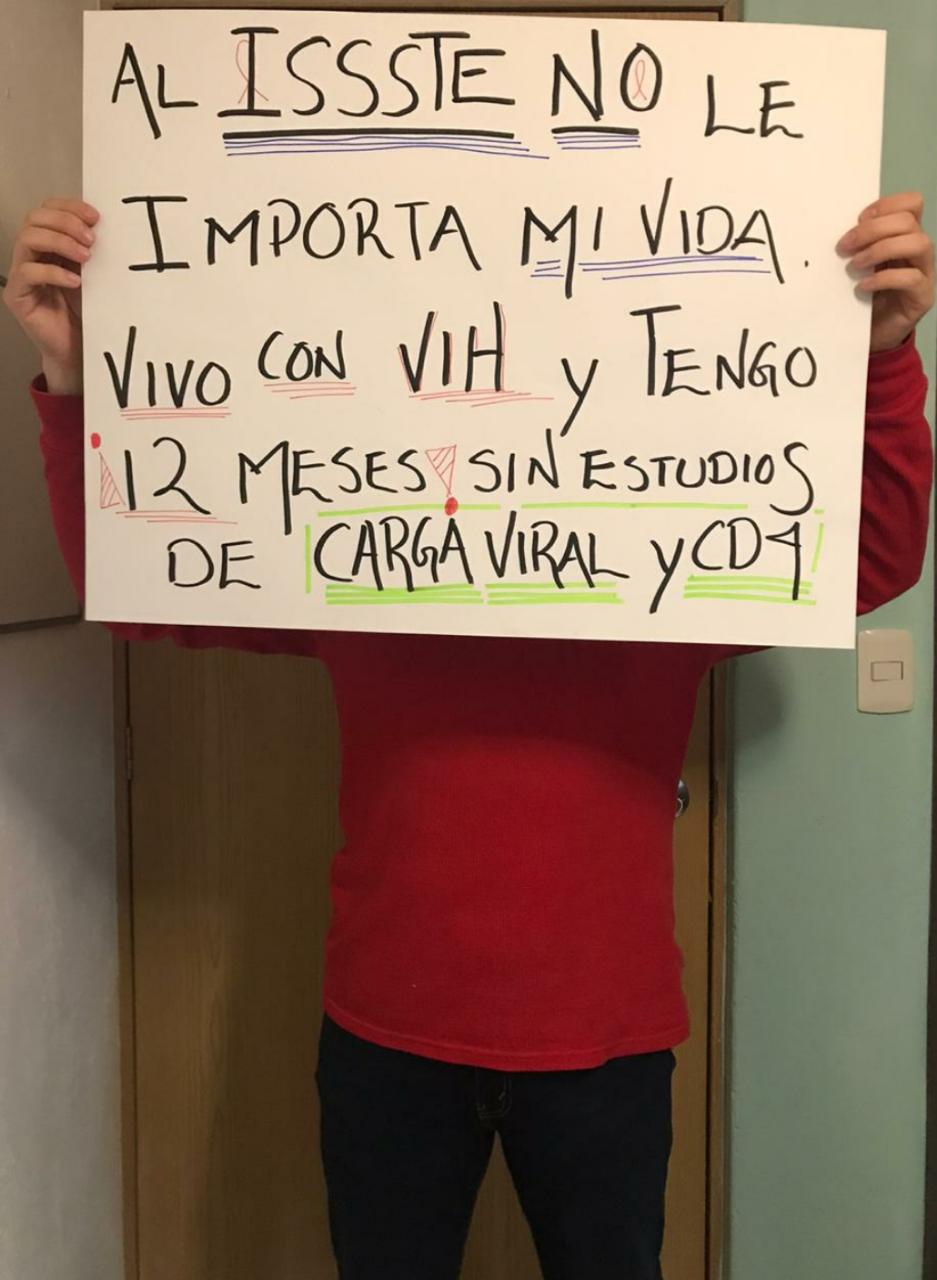 AL ISSSTE NO LE
IMPORTA MI VIDA.
VIVO CON VIH y TENGO
¡12 MESES! SIN ESTUDIOS
DE CARGA VIRAL y CD4